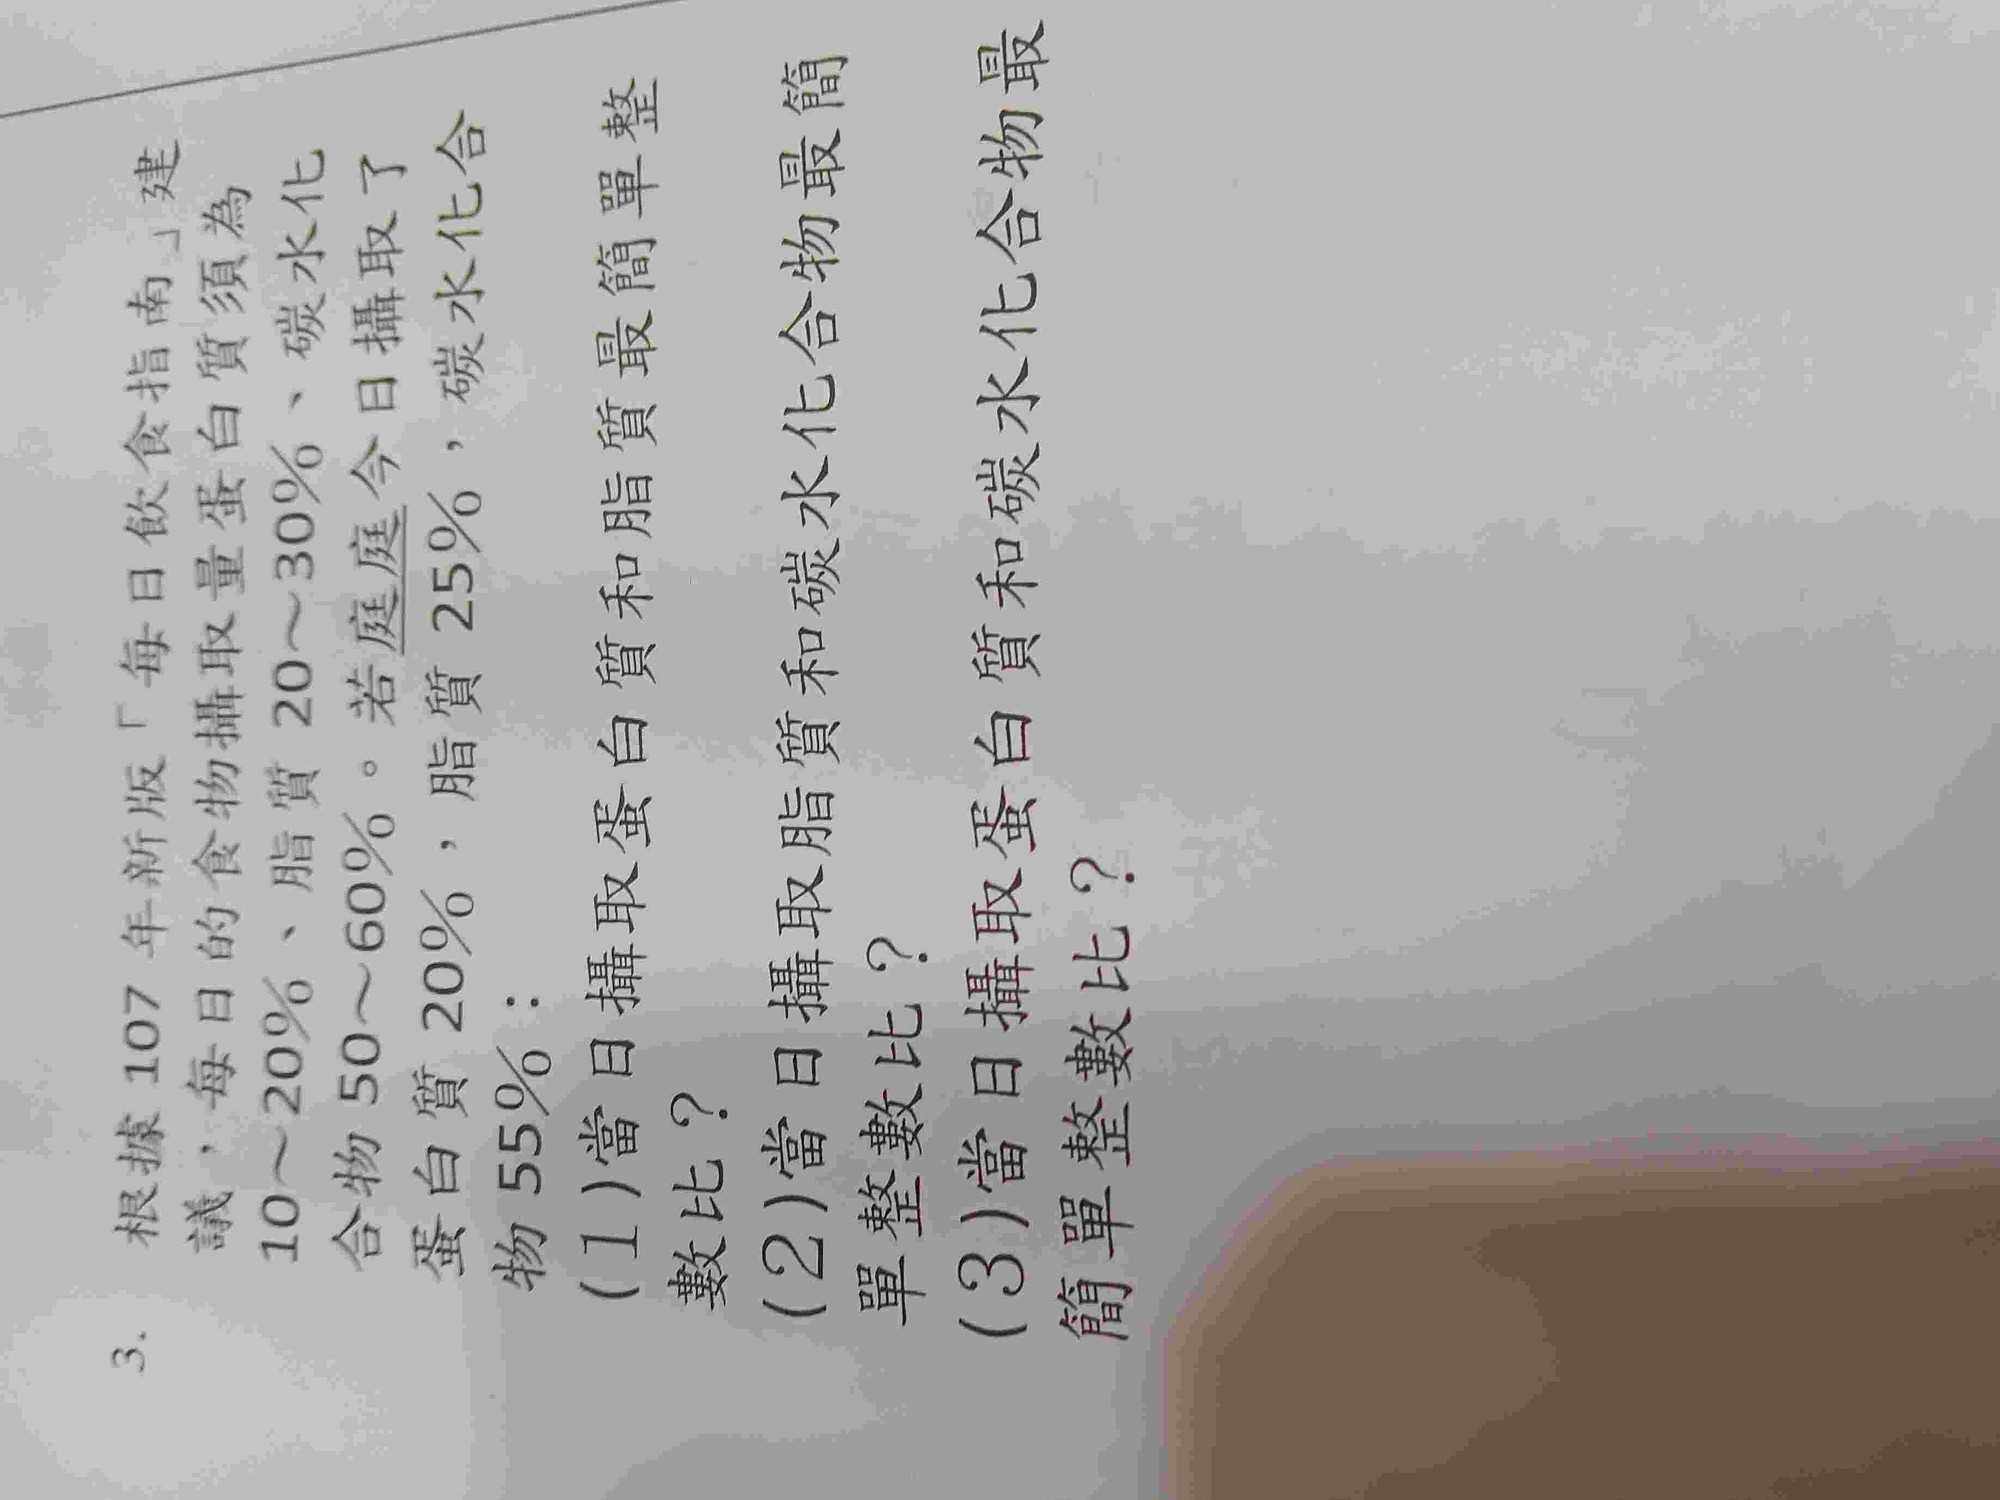 3. 根據 107 年新版「每日飲食指南」建
議，每日的食物攝取量蛋白質須為
10～20%、脂質 20～30%、碳水化
合物 50～60%。若庭庭今日攝取了
蛋白質 20%，脂質 25%，碳水化合
物 55%：
(1)當日攝取蛋白質和脂質最簡單整
數比？
(2)當日攝取脂質和碳水化合物最簡
單整數比？
(3)當日攝取蛋白質和碳水化合物最
簡單整數比？